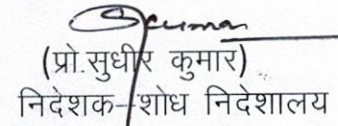 (प्रो.सुधीर कुमार)
निदेशक-शोध निदेशालय